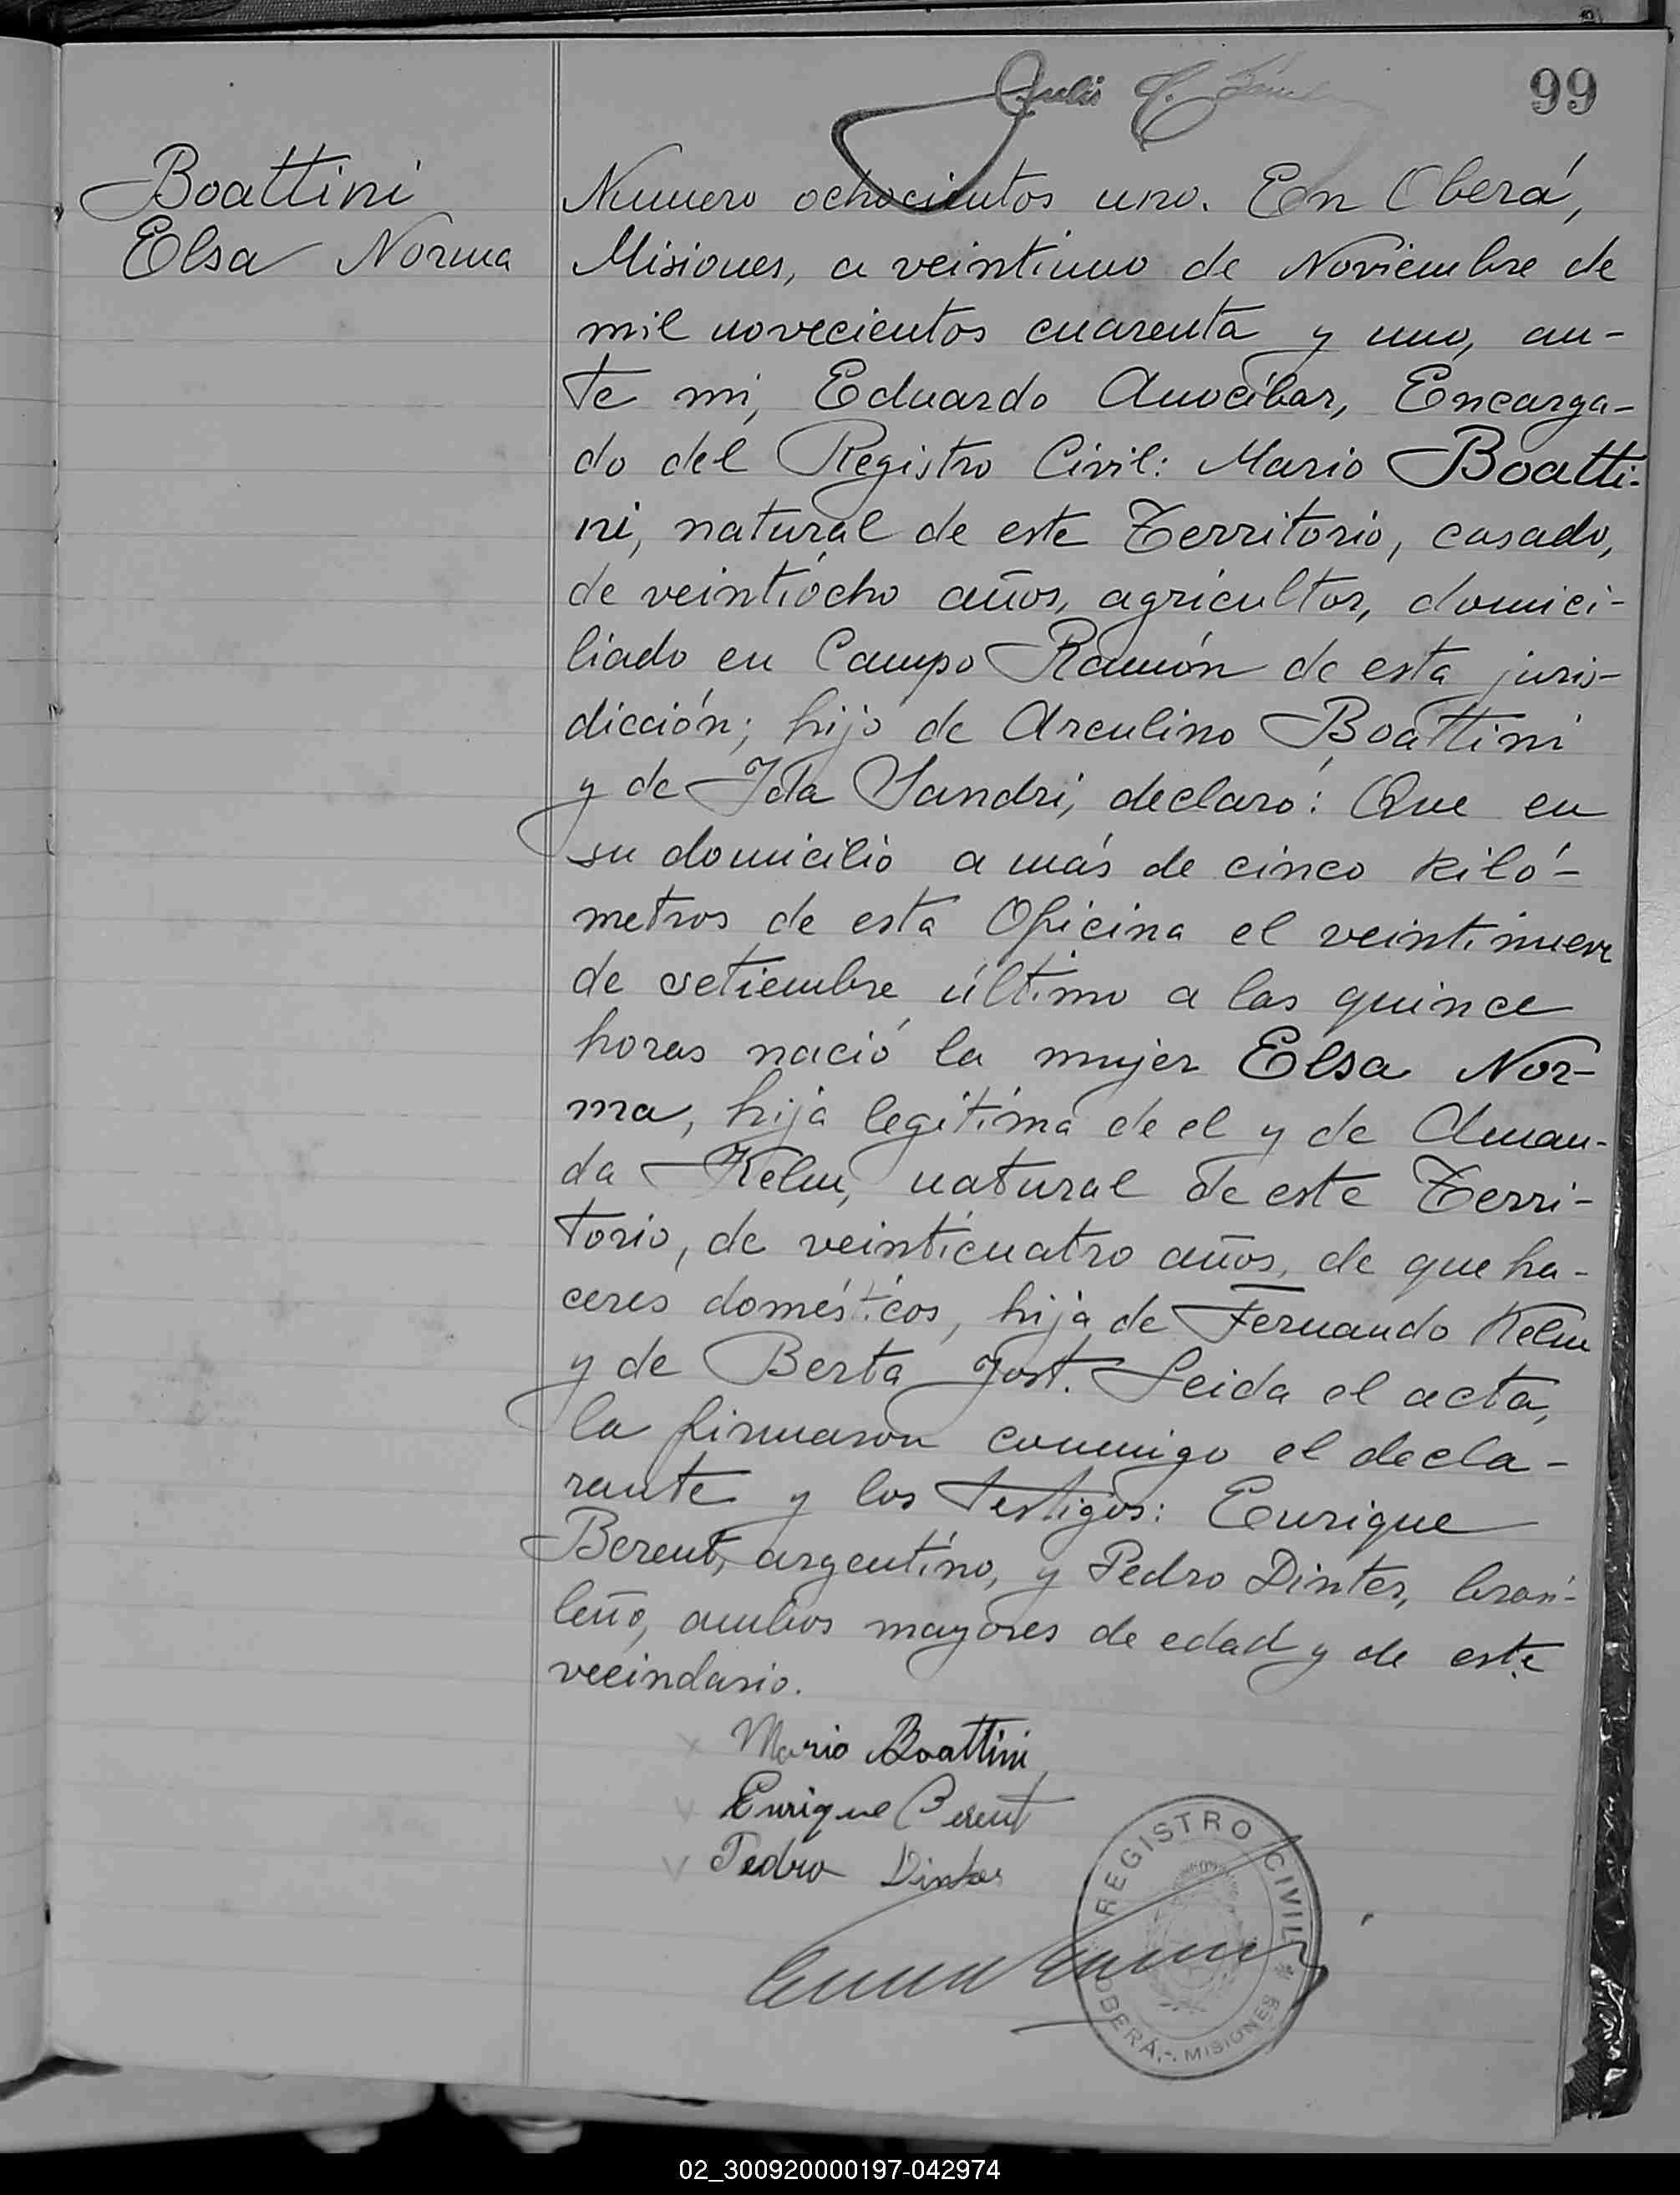 99
Julio C.
Boattini
Elsa Norma
Numero ochocientos uno. En Oberá,
Misiones, a veintiuno de Noviembre de
mil novecientos cuarenta y uno, an-
te mi, Eduardo Anocíbar, Encarga-
do del Registro Civil: Mario Boatti-
ni, natural de este Territorio, casado,
de veintiocho años, agricultor, domici-
liado en Campo Ramón de esta juris-
dicción; hijo de Arculino Boattini
y de Ida Sandri, declaró: Que en
su domicilio a más de cinco kiló-
metros de esta Oficina el veintinueve
de setiembre último a las quince
horas nació la mujer Elsa Nor-
ma, hija legítima de el y de Aman-
da Kelm, natural de este Terri-
torio, de veinticuatro años, de queha-
ceres domésticos, hija de Fernando Kelm
y de Berta Jost. Leida el acta,
la firmaron conmigo el decla-
rante y los testigos: Enrique
Berent, argentino, y Pedro Dinter, brasi-
leño, ambos mayores de edad y de este
vecindario.
Mario Boattini
Enrique Berent
Pedro Dinter
REGISTRO CIVIL
OBERÁ.-. MISIONES
02_300920000197-042974